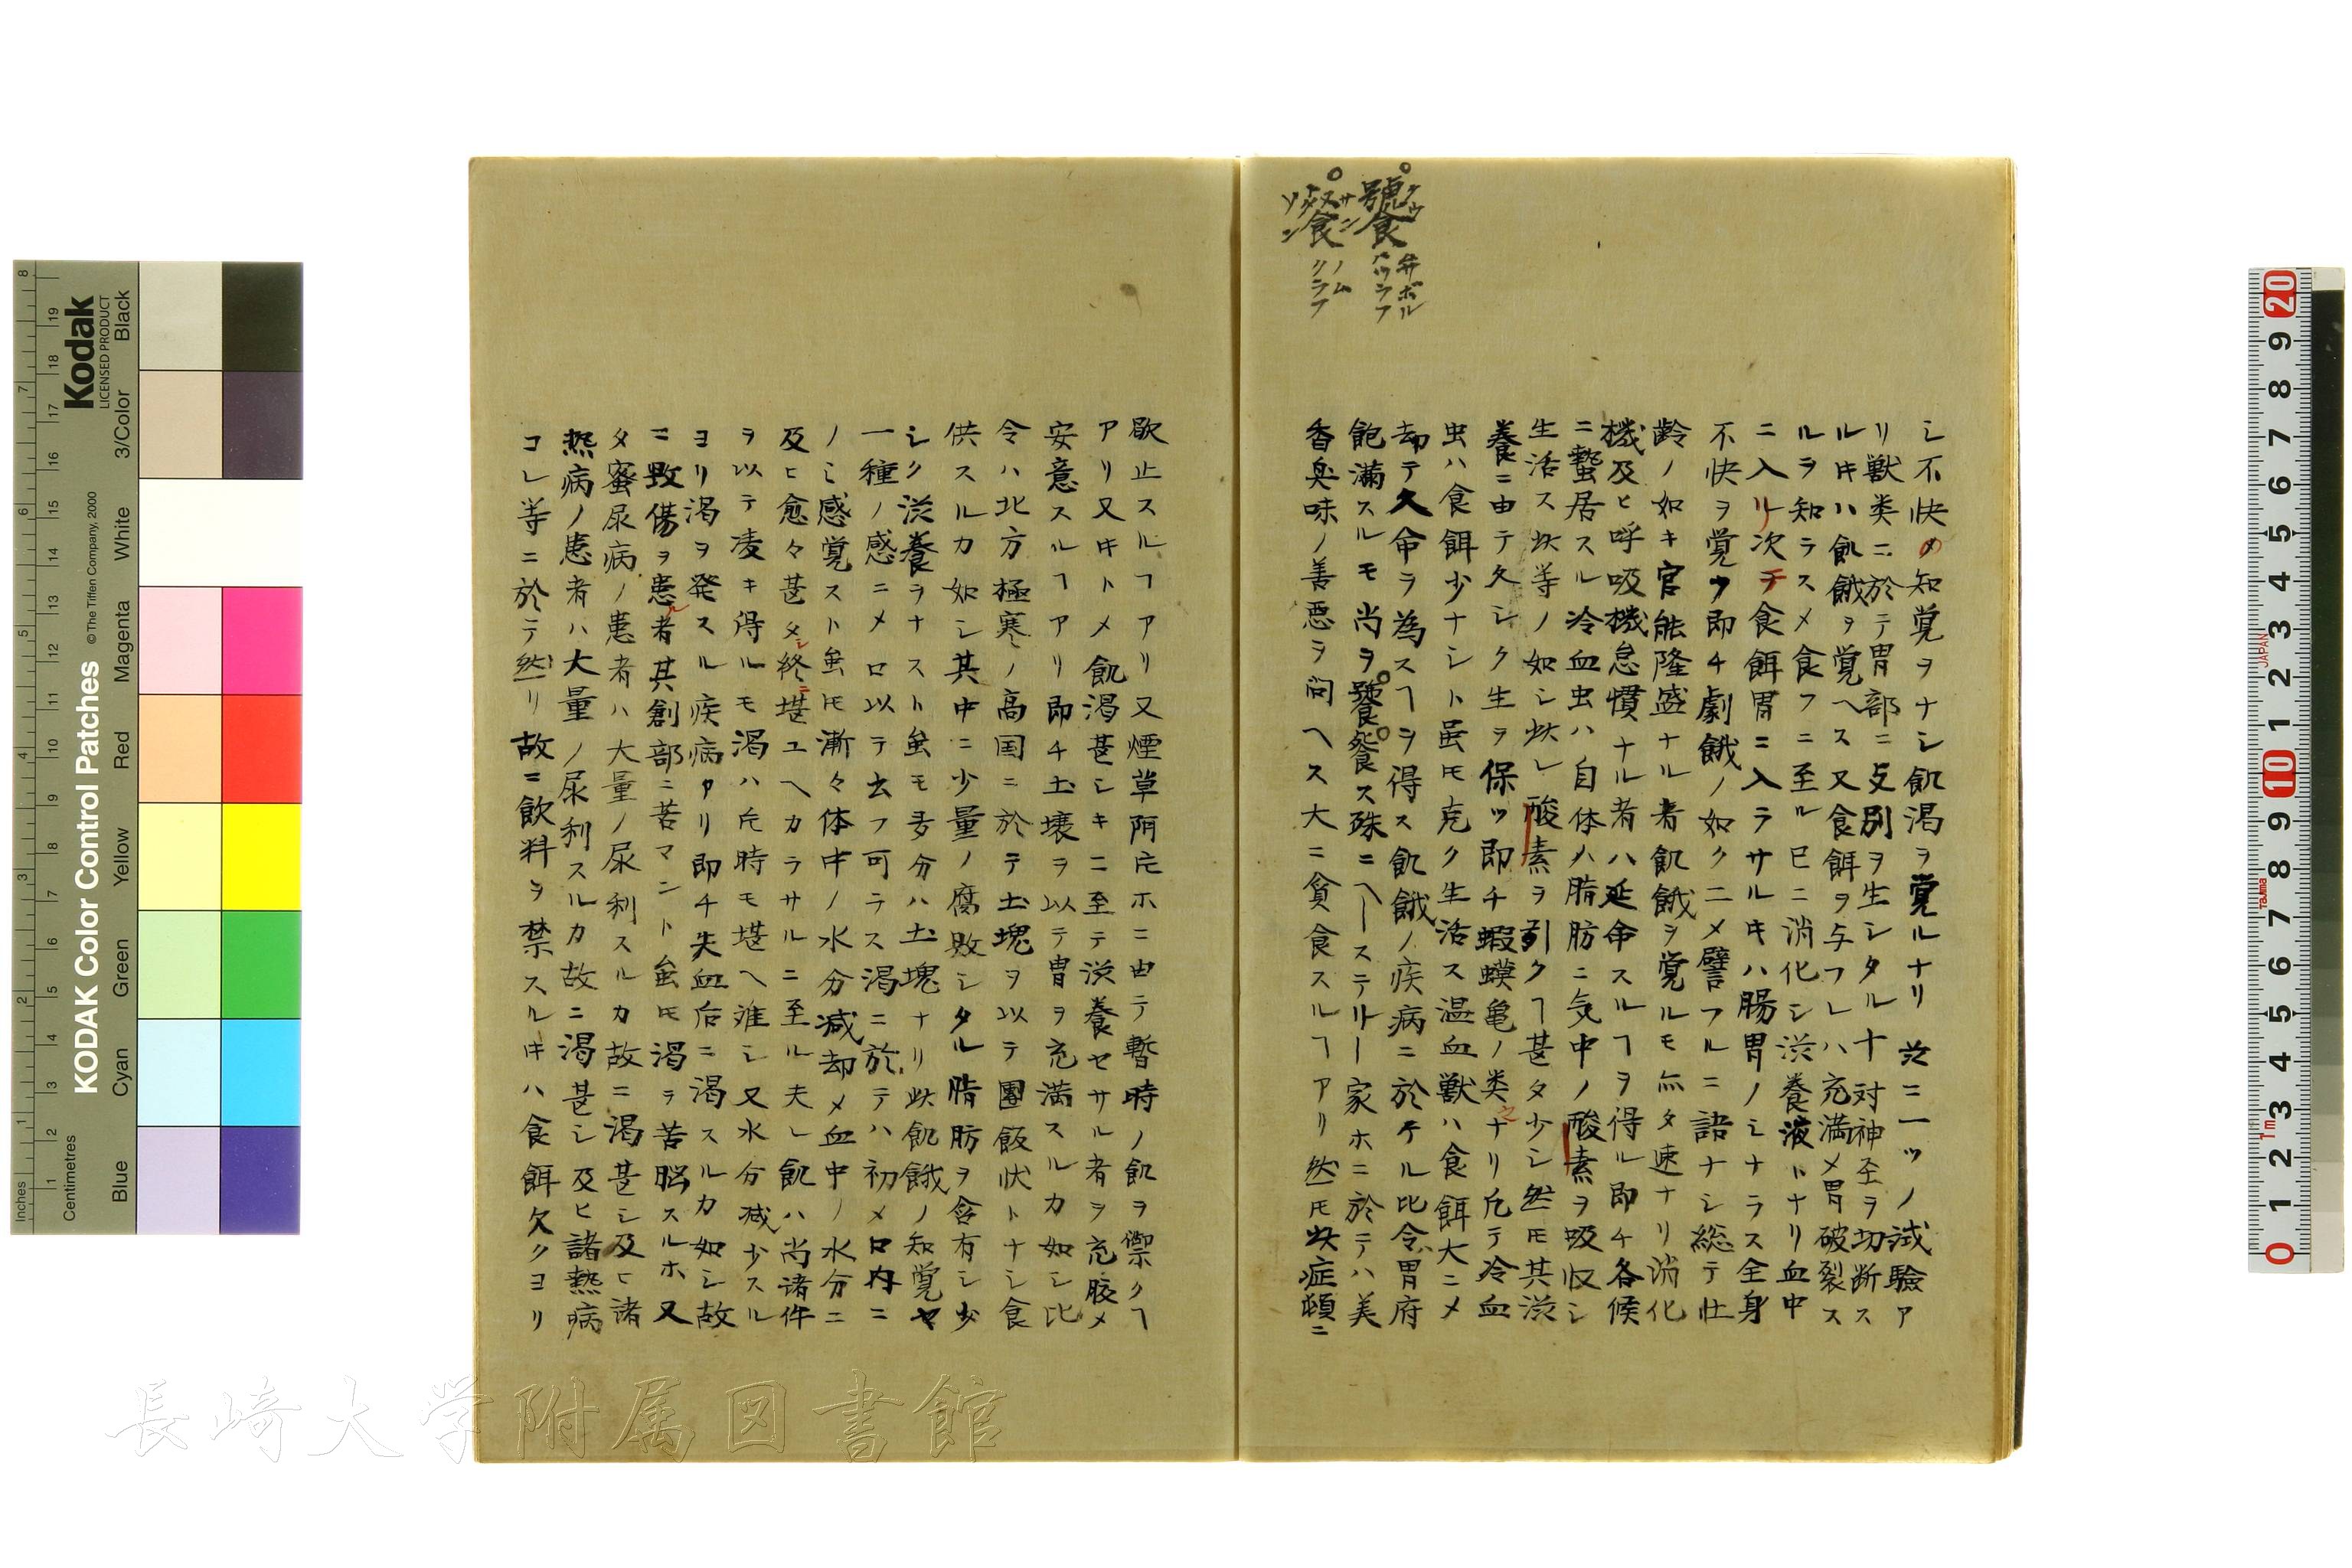 饕 タウ 弁ボル ハウラフ
飡 サン ソン ノム クラフ
シ不快〆知覚ヲナシ飢渇ヲ覚ルナリ茲ニ一ツノ試驗ア
リ獣类ニ於テ胃部ニ支別ヲ生シタル十対神圣ヲ切断ス
ルキハ飢餓ヲ覚ヘス又食餌ヲ与フレハ充満〆胃破裂ス
ルヲ知ラス〆食フニ至ル巳ニ消化シ滋養液トナリ血中
ニ入リ次テ食餌胃ニ入ラサルキハ腸胃ノシナラス全身
不快ヲ覚ウ即チ劇餓ノ如クニ〆譬フルニ語ナシ総テ壮
齡ノ如キ官能隆盛ナル者飢餓ヲ覚ルモ亦タ速ナリ消化
機及ヒ呼吸機怠慣ナル者ハ延命スルヿヲ得ル即チ各候
ニ蟄居スル冷血虫ハ自体ハ脂肪ニ気中ノ酸素ヲ吸収シ
生活ス此等ノ如シ此レ酸素ヲ引クヿ甚タ少シ然モ其滋
養ニ由テ久シク生ヲ保ツ即チ蝦蟆亀ノ类之ナリ凢テ冷血
虫ハ食餌少ナシト虽モ克ク生活ス温血獣ハ食餌大ニ〆
却テ久命ヲ為スヿヲ得ス飢餓ノ疾病ニ於ケル比令胃府
飽満スルモ尚ヲ饕餮ス殊ニヘーステリー家ホニ於テハ美
香臭味ノ善悪ヲ问ヘス大ニ貪食スルヿアリ然モ此症頓ニ
歇止スルヿアリ又煙草阿片ホニ由テ暫時ノ飢ヲ禦クヿ
アリ又キト〆飢渇甚シキニ至テ滋養セサル者ヲ充胶〆
安意スルヿアリ即チ土壌ヲ以テ胃ヲ充満スルカ如シ比
令ハ北方極寒ノ高国ニ於テ土塊ヲ以テ團飯状トナシ食
供スルカ如シ其中ニ少量ノ腐敗シタル脂肪ヲ含有シ少
シク滋養ヲナスト虽モ多分ハ土塊ナリ此飢餓ノ知覚ヤ
一種ノ感ニ〆口以テ玄フ可ラス渇ニ於テハ初メ口内ニ
ノミ感覚スト虽モ漸々体中ノ水分減却〆血中ノ水分ニ
及ヒ愈々甚タシ終ニ堪ユヘカラサルニ至ル夫レ飢ハ尚诸件
ヲ以テ凌キ得ルモ渇ハ片時モ堪ヘ难シ又水分减少スル
ヨリ渇ヲ発スル疾病アリ即チ失血后ニ渇スルカ如シ故
ニ毀傷ヲ患ル者其創部ニ苦マント虽モ渇ヲ苦脳スルホ又
タ蜜尿病ノ患者ハ大量ノ尿利スルカ故ニ渇甚シ及ヒ諸
熱病ノ患者ハ大量ノ尿利スルカ故ニ渇甚シ及ヒ諸熱病
コレ等ニ於テ然リ故ニ飲料ヲ禁スルキハ食餌欠クヨリ
長崎大学附属図書館
KODAK Color Control Patches © The Tiffen Company, 2000
Kodak
LICENSED PRODUCT
Inches
Centimetres
Blue Cyan Green Yellow Red Magenta White 3/Color Black
JAPAN
Tajima